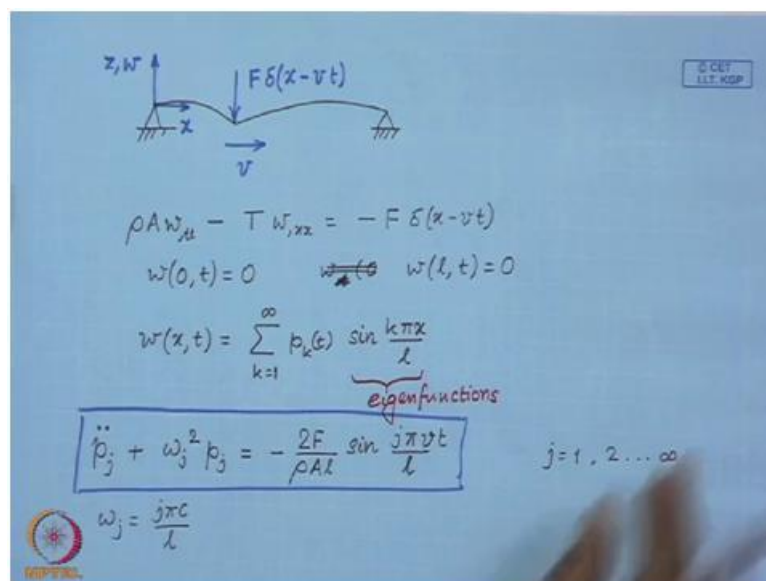 z,w
F δ(x-vt)
© CET
I.I.T. KGP
x
v
ρA w,tt - T w,xx = - F δ(x-vt)
w(0,t) = 0 w(l,t) = 0
w(x,t) = ∑_{k=1}^{∞} p_k(t) sin kπx/l
eigenfunctions
p̈_j + ω_j² p_j = - 2F/ρAl sin jπvt/l j=1, 2 ... ∞
ω_j = jπc/l
NPTEL